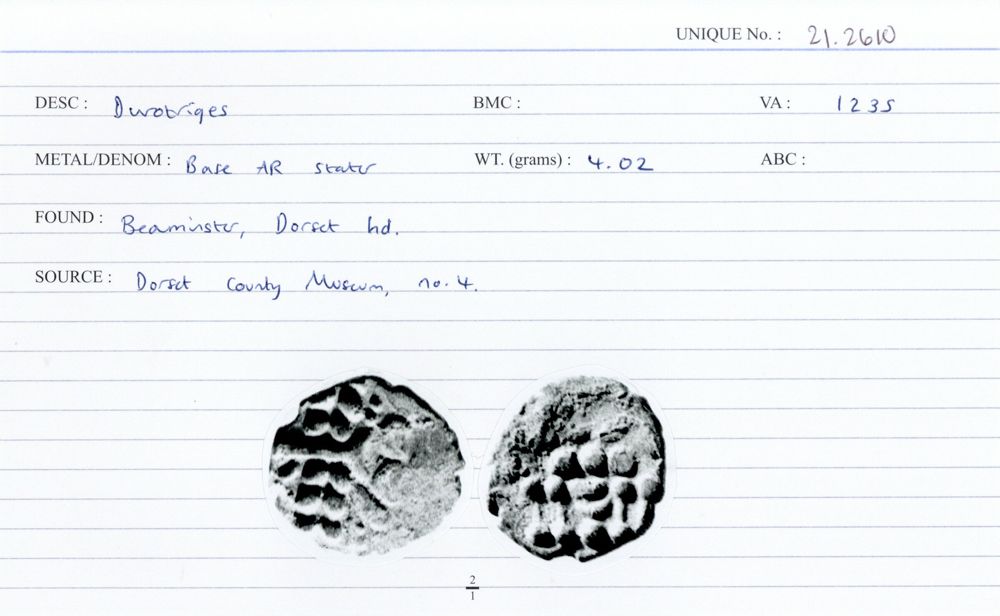 UNIQUE No. : 21.2610
DESC : Durotriges BMC : VA : 1235
METAL/DENOM : Base AR stater WT. (grams) : 4.02 ABC :
FOUND : Beaminster, Dorset hd.
SOURCE : Dorset County Museum, no. 4.
2
1